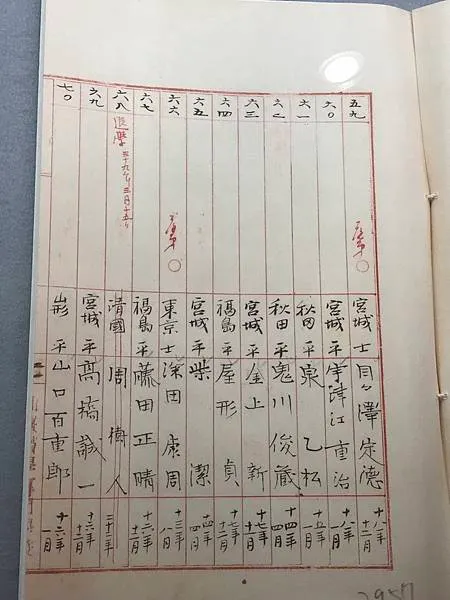 五九 宮城 士 貝々澤定德 十八年十二月
六〇 宮城 平 宇津江重治 十八年一月
六一 秋田 平 泉乙松 十五年一月
六二 秋田 平 鬼川俊藏 十四年四月
六三 宮城 平 金上新 十七年
六四 福島 平 屋形貞 十七年十二月
六五 宮城 平 柴潔 十四年四月
六六 ○ 東京 士 深田康周 十三年八月
六七 福島 平 藤田正晴
六八 退學 三十九年三月十五日 清國 周樹人 二十二年
六九 宮城 平 髙橋誠一 十六年十二月
七〇 山形 平 山口百重郎 十六年一月